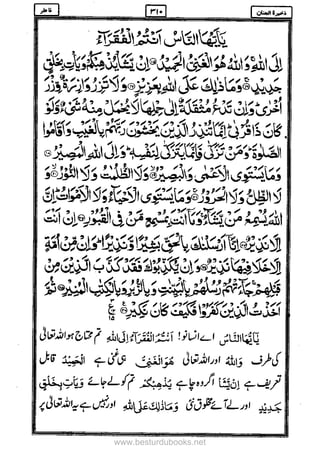 ذخيرة الجنان ۳۱۰ فاطر
يٰٓاَيُّهَا النَّاسُ اَنْتُمُ الْفُقَرَآءُ
اِلَى اللهِ وَاللهُ هُوَ الْغَنِيُّ الْحَمِيْدُ۝ اِنْ يَّشَاْ يُذْهِبْكُمْ وَيَاْتِ بِخَلْقٍ
جَدِيْدٍ۝ وَمَا ذٰلِكَ عَلَى اللهِ بِعَزِيْزٍ۝ وَلَا تَزِرُ وَازِرَةٌ وِّزْرَ
اُخْرٰى وَاِنْ تَدْعُ مُثْقَلَةٌ اِلٰى حِمْلِهَا لَا يُحْمَلْ مِنْهُ شَيْءٌ وَّلَوْ
كَانَ ذَا قُرْبٰى اِنَّمَا تُنْذِرُ الَّذِيْنَ يَخْشَوْنَ رَبَّهُمْ بِالْغَيْبِ وَاَقَامُوا
الصَّلٰوةَ وَمَنْ تَزَكّٰى فَاِنَّمَا يَتَزَكّٰى لِنَفْسِهٖ وَاِلَى اللهِ الْمَصِيْرُ۝
وَمَا يَسْتَوِي الْاَعْمٰى وَالْبَصِيْرُ۝ وَلَا الظُّلُمٰتُ وَلَا النُّوْرُ۝ وَ
لَا الظِّلُّ وَلَا الْحَرُوْرُ۝ وَمَا يَسْتَوِي الْاَحْيَآءُ وَلَا الْاَمْوَاتُ اِنَّ
اللهَ يُسْمِعُ مَنْ يَّشَآءُ وَمَآ اَنْتَ بِمُسْمِعٍ مَّنْ فِي الْقُبُوْرِ۝ اِنْ اَنْتَ
اِلَّا نَذِيْرٌ۝ اِنَّآ اَرْسَلْنٰكَ بِالْحَقِّ بَشِيْرًا وَّنَذِيْرًا وَاِنْ مِّنْ اُمَّةٍ
اِلَّا خَلَا فِيْهَا نَذِيْرٌ۝ وَاِنْ يُّكَذِّبُوْكَ فَقَدْ كَذَّبَ الَّذِيْنَ مِنْ
قَبْلِهِمْ جَآءَتْهُمْ رُسُلُهُمْ بِالْبَيِّنٰتِ وَبِالزُّبُرِ وَبِالْكِتٰبِ الْمُنِيْرِ۝ ثُمَّ
اَخَذْتُ الَّذِيْنَ كَفَرُوْا فَكَيْفَ كَانَ نَكِيْرِ۝
يٰٓاَيُّهَا النَّاسُ اے انسانو! اَنْتُمُ الْفُقَرَآءُ اِلَى اللهِ تم محتاج ہو اللہ تعالیٰ
کی طرف وَاللهُ اور اللہ تعالیٰ هُوَ الْغَنِيُّ ہی غنی ہے الْحَمِيْدُ قابل
تعریف ہے اِنْ يَّشَاْ اگر وہ چاہے يُذْهِبْكُمْ تم کو لے جائے وَيَاْتِ بِخَلْقٍ
جَدِيْدٍ اور لے آئے مخلوق نئی وَمَا ذٰلِكَ عَلَى اللهِ اور نہیں ہے یہ اللہ تعالیٰ پر
www.besturdubooks.net